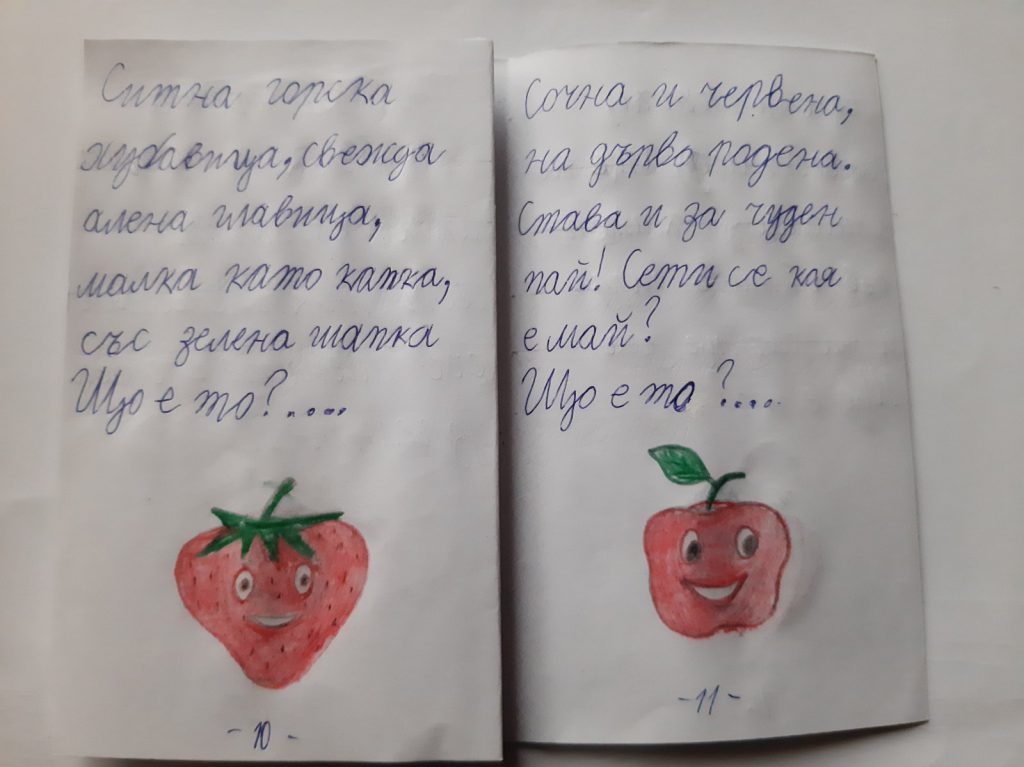 Ситна горска
хубавица, свежда
алена главица,
малка като капка,
със зелена шапка
Що е то?....
- 10 -
Сочна и червена,
на дърво родена.
Става и за чуден
пай! Сети се коя
е май?
Що е то?....
- 11 -